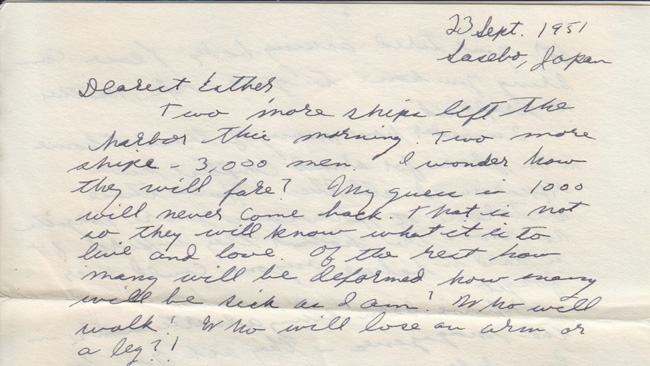 23 Sept. 1951
Sasebo, Japan
Dearest Esther,
Two more ships left the
harbor this morning. Two more
ships - 3,000 men. I wonder how
they will fare? My guess is 1000
will never come back. That is not
so they will know what it is to
live and love. Of the rest how
many will be deformed how many
will be sick as I am! Who will
walk! Who will lose an arm or
a leg?!